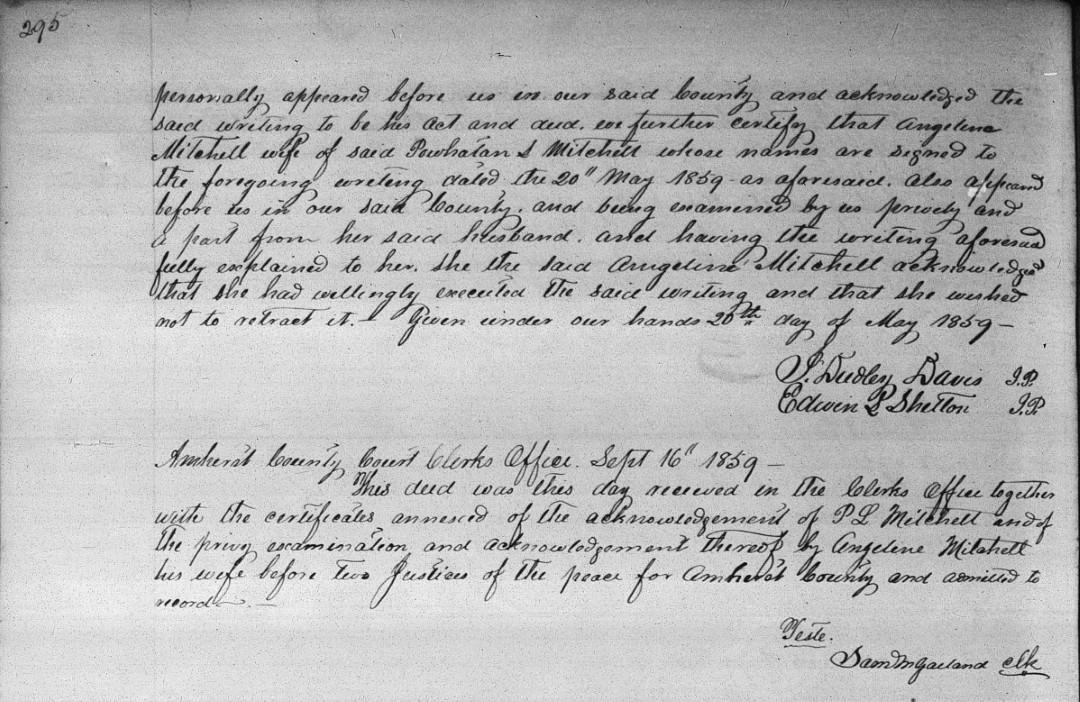 295
personally appeared before us in our said County and acknowledged the
said writing to be his act and deed. we further certify that Angeline
Mitchell wife of said Powhatan S Mitchell whose names are signed to
the foregoing writing dated the 20" May 1859 as aforesaid. also appeared
before us in our said County. and being examined by us privily and
a part from her said husband. and having the writing aforesaid
fully explained to her. she the said Angeline Mitchell acknowledged
that she had willingly executed the said writing and that she wished
not to retract it. - Given under our hands 20th day of May 1859 -
S. Dudley Davis J.P.
Edwin P Shelton J.P.
Amherst County Court Clerks Office. Sept 16" 1859 -
This deed was this day received in the Clerks Office together
with the certificates annexed of the acknowledgement of P L Mitchell and of
the privy examination and acknowledgement thereof by Angeline Mitchell
his wife before Two Justices of the peace for Amherst County and admitted to
record. -
Teste.
Saml M Garland clk